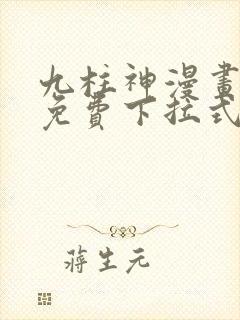 九柱神漫畫
免費下拉式
蔣生元